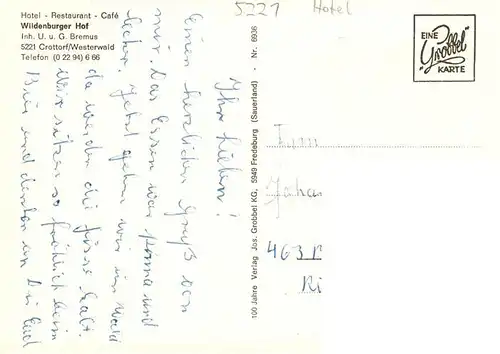 5221 Hotel
Hotel - Restaurant - Café
Wildenburger Hof
Inh. U. u. G. Bremus
5221 Crottorf/Westerwald
Telefon (0 22 94) 6 66
EINE
Grobbel
KARTE
Ihr Lieben!
Einen herzlichen Gruß von
mir. Das Essen war prima und
lecker. Jetzt gehen wir im Wald
da werden die Füsse kalt.
Wir sitzen so fröhlich beim
Bier und denken an
100 Jahre Verlag Jos. Grobbel KG, 5949 Fredeburg (Sauerland) Nr. 6936
Fam
Joha
463
Ri